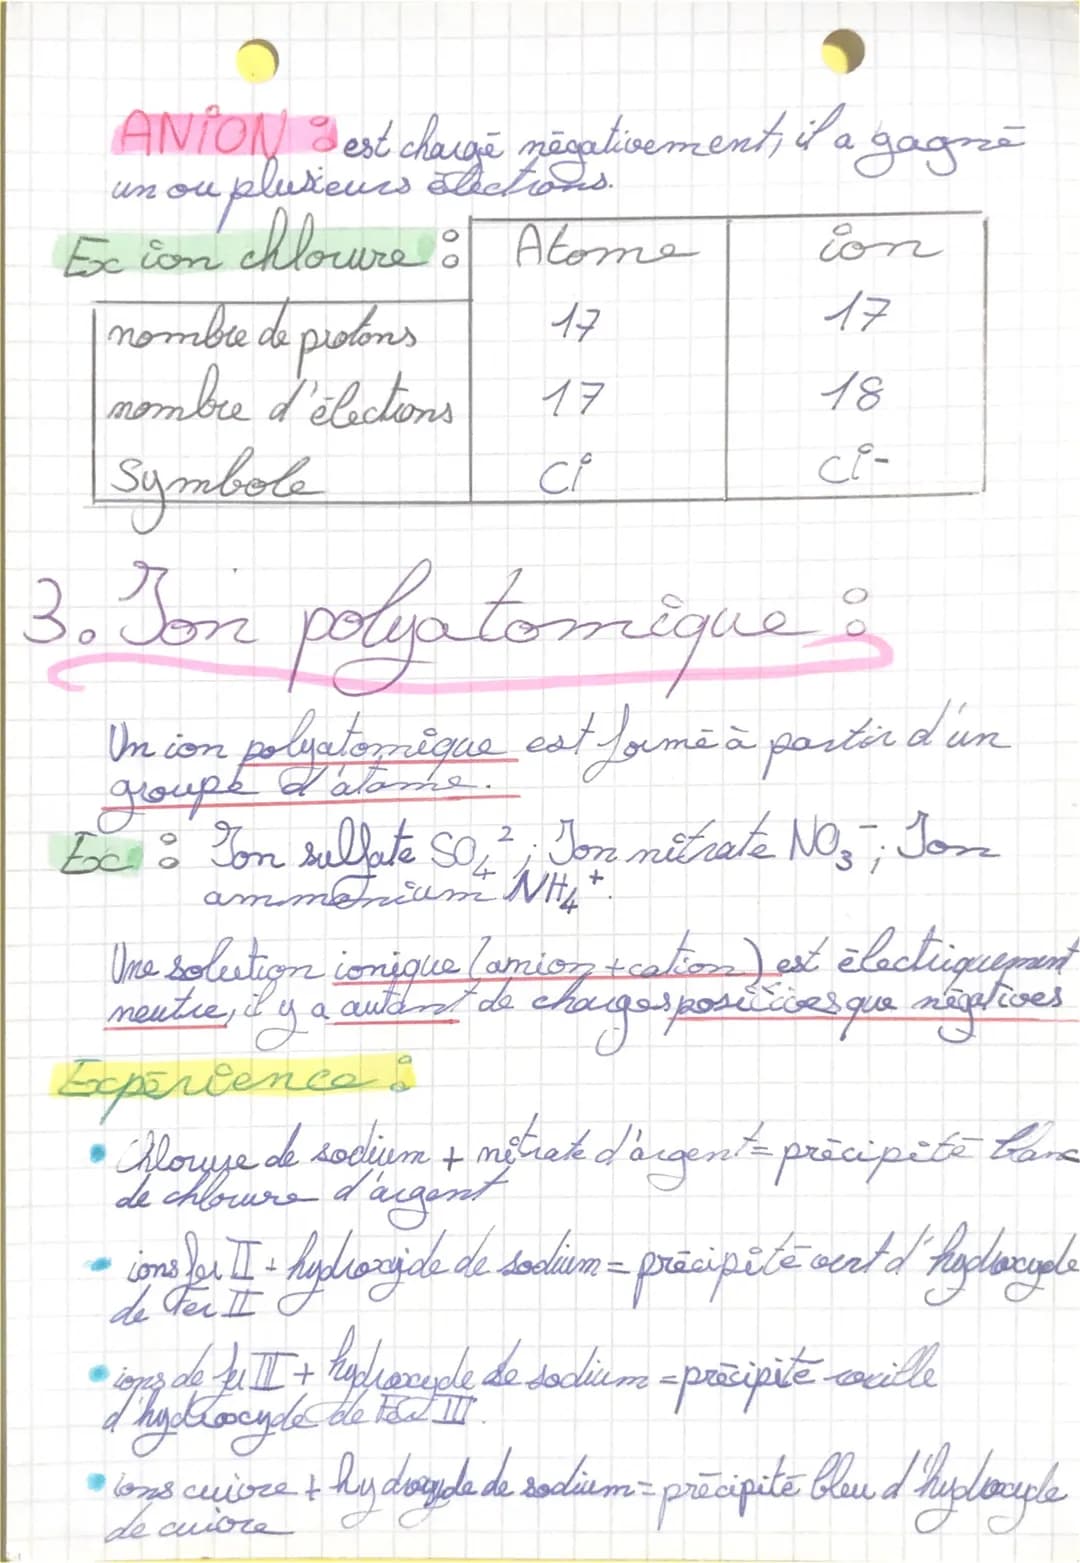 ANION : est chargé négativement, il a gagné
un ou plusieurs électrons.
Ex ion chlorure : Atome ion
nombre de protons 17 17
nombre d'électrons 17 18
Symbole Cl Cl-
3. Ion polyatomique :
Un ion polyatomique est formé à partir d'un
groupe d'atome.
Ex : Ion sulfate SO₄²; Ion nitrate NO₃⁻; Ion
ammonium NH₄⁺.
Une solution ionique (anion + cation) est électriquement
neutre, il y a autant de charges positives que négatives
Expérience :
• Chlorure de sodium + nitrate d'argent = précipité blanc
de chlorure d'argent
• ions fer II + hydroxyde de sodium = précipité vert d'hydroxyde
de Fer II
• ions de fer III + hydroxyde de sodium = précipité rouille
d'hydroxyde de Fer III.
• ions cuivre + hydroxyde de sodium = précipité bleu d'hydroxyde
de cuivre